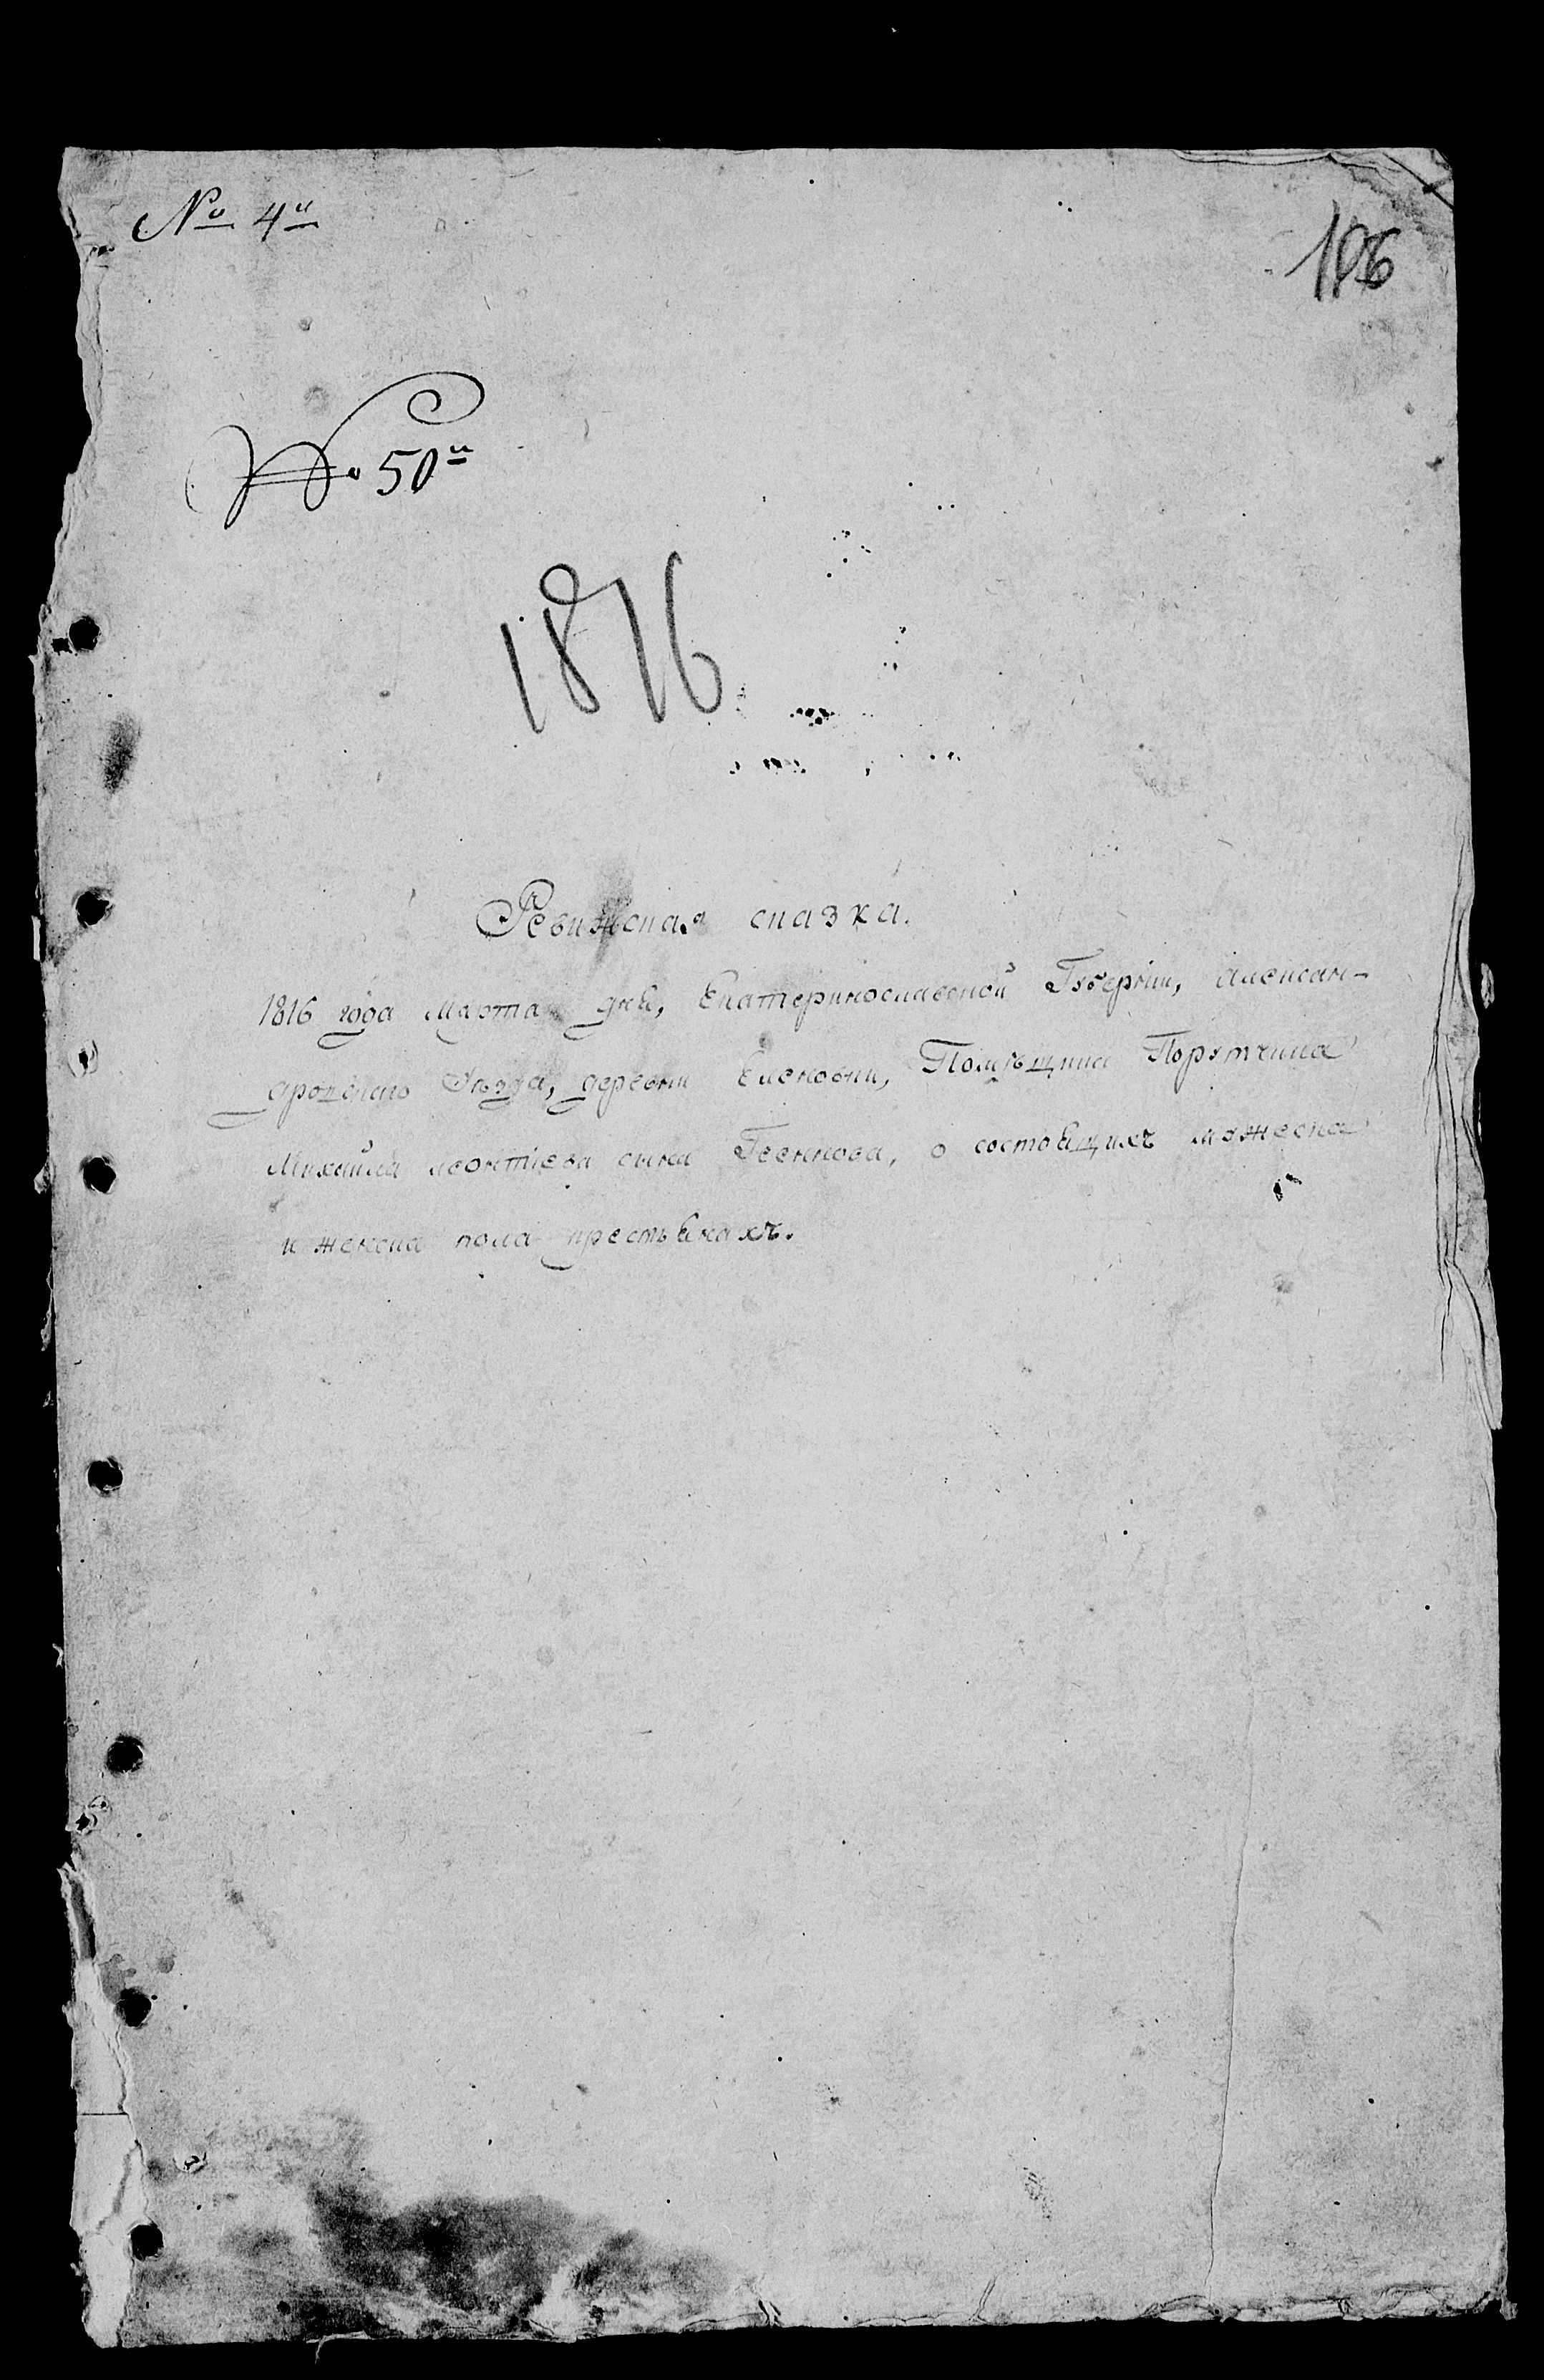 № 4й
106
№ 50й
1816
Ревижская сказка.
1816 года Марта дня, Екатеринославской Губерніи, Алексан-
дровскаго Уѣзда, деревни Еленовки, Помѣщика Порутчика
Михайла Леонтіева сына о состоящихъ мужеска
и женска пола крестьянахъ.